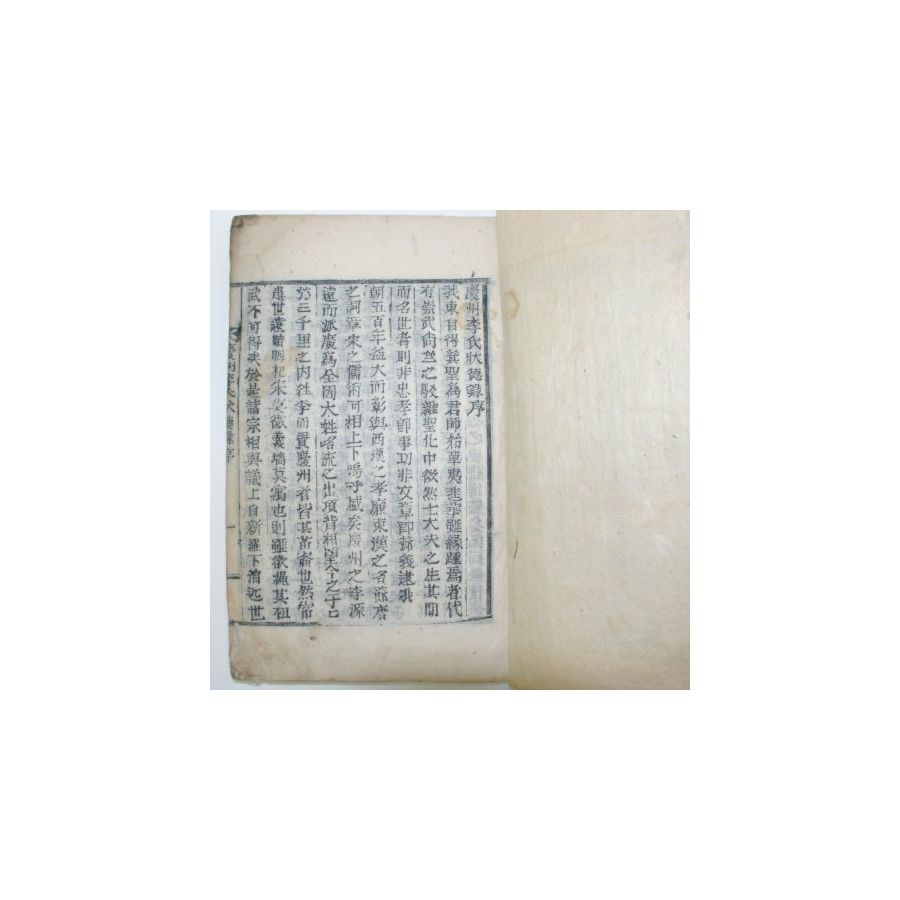 慶州李氏狀德錄序
我東自得箕聖爲君師始華夷進崇雖緣踵爲者代
有崇武尙竺之駁雜聖化中欲然士大夫之生其間
而名世者則非忠孝卽事功非文章卽節義逮我
朝五百年益大而彰與西漢之孝廉東漢之名節唐
之詞章宋之儒術可相上下嗚呼盛矣慶州之李源
遠而派廣爲全國大姓略流之出項背相望今之于
三千里之內姓李而貫慶州者皆其苗裔也然
世遠蹟杞宋莫徵羹墻莫寓也則雖欲繩其祖
武不可得矣於是諸宗相與議上自新羅下洎近世
慶州李氏狀德錄序
一